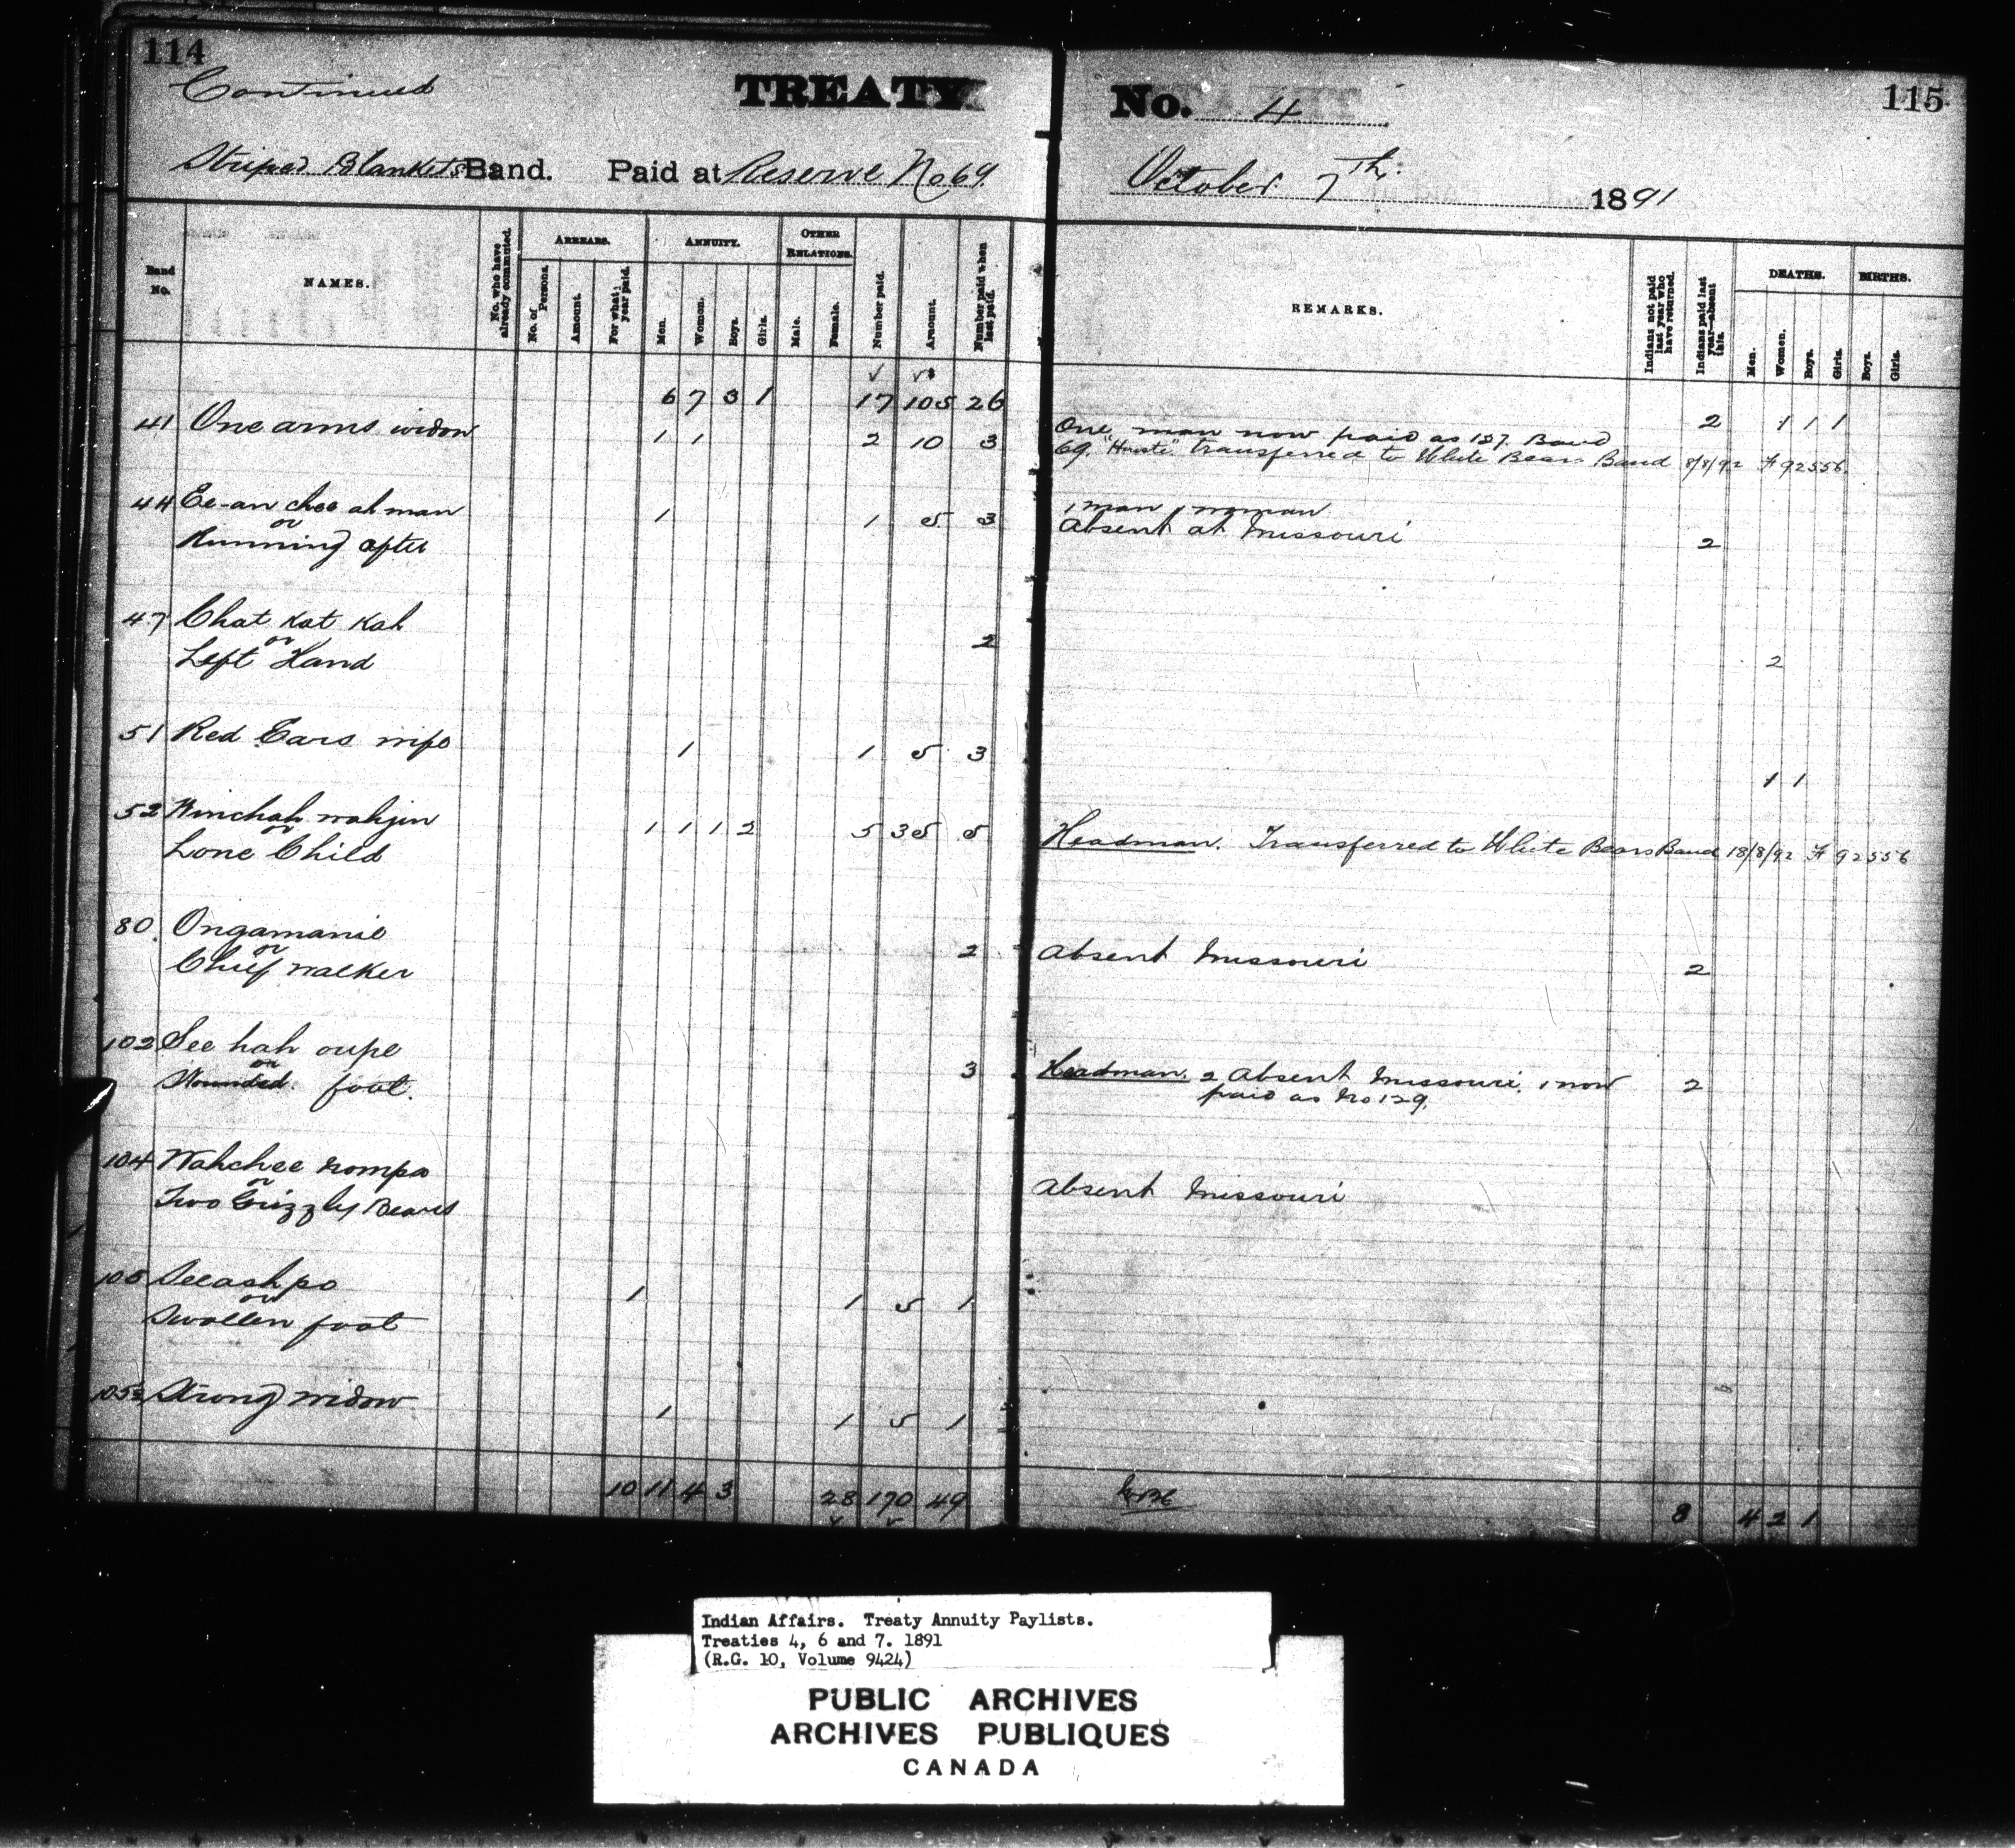 114
Continued
TREATY
No. 4
115
Striped Blankets Band. Paid at Reserve No 69.
October 7th. 1891
Band No.
NAMES.
No. who have already commuted.
ARREARS.
No. of Persons.
Amount.
For what year paid.
ANNUITY.
Men.
Women.
Boys.
Girls.
OTHER RELATIONS.
Male.
Female.
Number paid.
Amount.
Number paid when last paid.
REMARKS.
Indians not paid last year who have returned.
Indians paid last year—absent this.
DEATHS.
Men.
Women.
Boys.
Girls.
BIRTHS.
Boys.
Girls.
6 7 3 1 17 105 26
2 1 1 1
41 One arms widow 1 1 2 10 3 One man now paid as 127. Band
69. transferred to White Bears Band 8/8/92 F 92556
44 Ee-an chee ah man 1 1 5 3 1 man 1 woman
or
Running after Absent at Missouri 2
47 Chat kat kah
or 2
Left Hand 2
51 Red Ears wife 1 1 5 3 1 1
52 Winchah wahjin 1 1 1 2 5 35 5
or
Lone Child Headman. Transferred to White Bears Band 18/8/92 F 92556
80. Ongamanie
or 2 Absent Missouri 2
Chief walker
102 See hah oupe
or 3 Headman. 2 Absent Missouri. 1 now 2
Wounded. foot. paid as No 129.
104 Wahchee nompa
or Absent Missouri
Two Grizzly Bears
105 Seeashpo
or 1 1 5 1
Swollen foot
Strong widow
1 1 5 1
10 11 4 3 28 170 49
8 4 2 1
Indian Affairs. Treaty Annuity Paylists.
Treaties 4, 6 and 7. 1891
(R.G. 10, Volume 9424)
PUBLIC ARCHIVES
ARCHIVES PUBLIQUES
CANADA